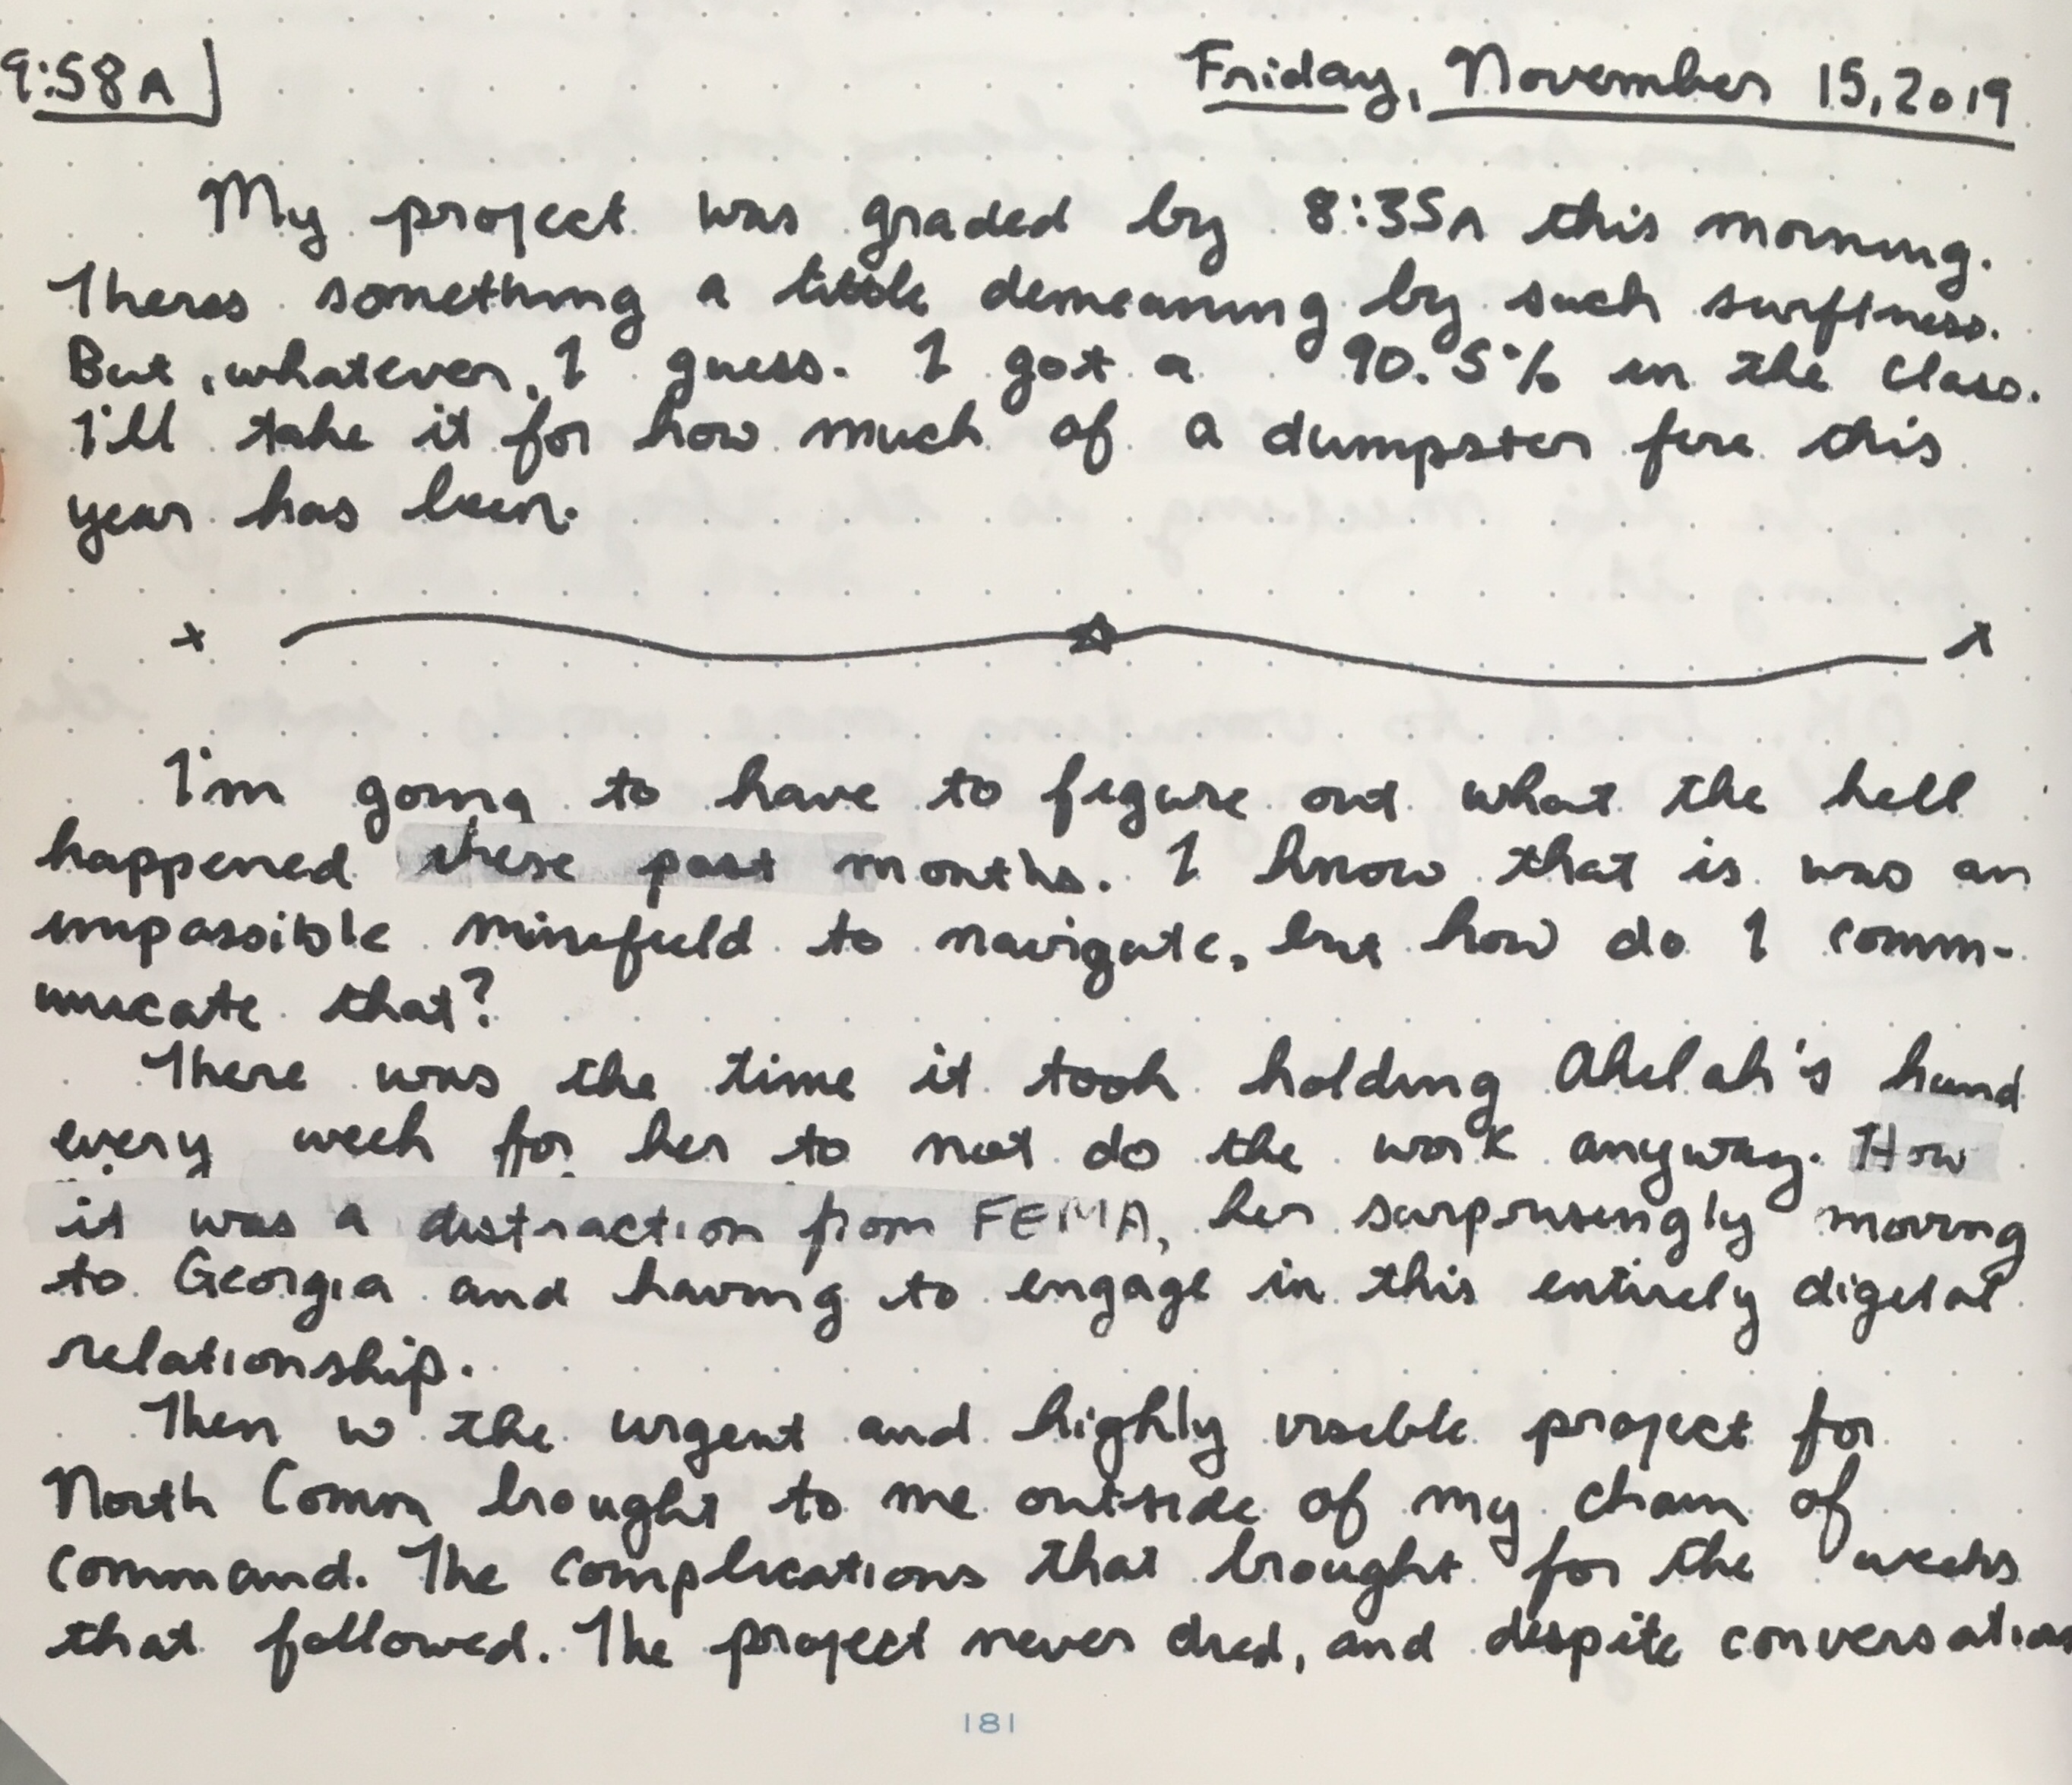 9:58A
Friday, November 15, 2019
My project was graded by 8:35A this morning.
Theres something a little demeaning by such swiftness.
But, whatever, I guess. I got a 90.5% in the class.
I'll take it for how much of a dumpster fire this
year has been.
I'm going to have to figure out what the hell
happened these past months. I know that is was an
impossible minefield to navigate, but how do I comm-
unicate that?
There was the time it took holding Ahelah's hand
every week for her to not do the work anyway. How
it was a distraction from FEMA, her surprisingly moving
to Georgia and having to engage in this entirely digital
relationship.
Then w the urgent and highly visible project for
North Comm brought to me outside of my chain of
command. The complications that brought for the weeks
that followed. The project never died, and despite
181